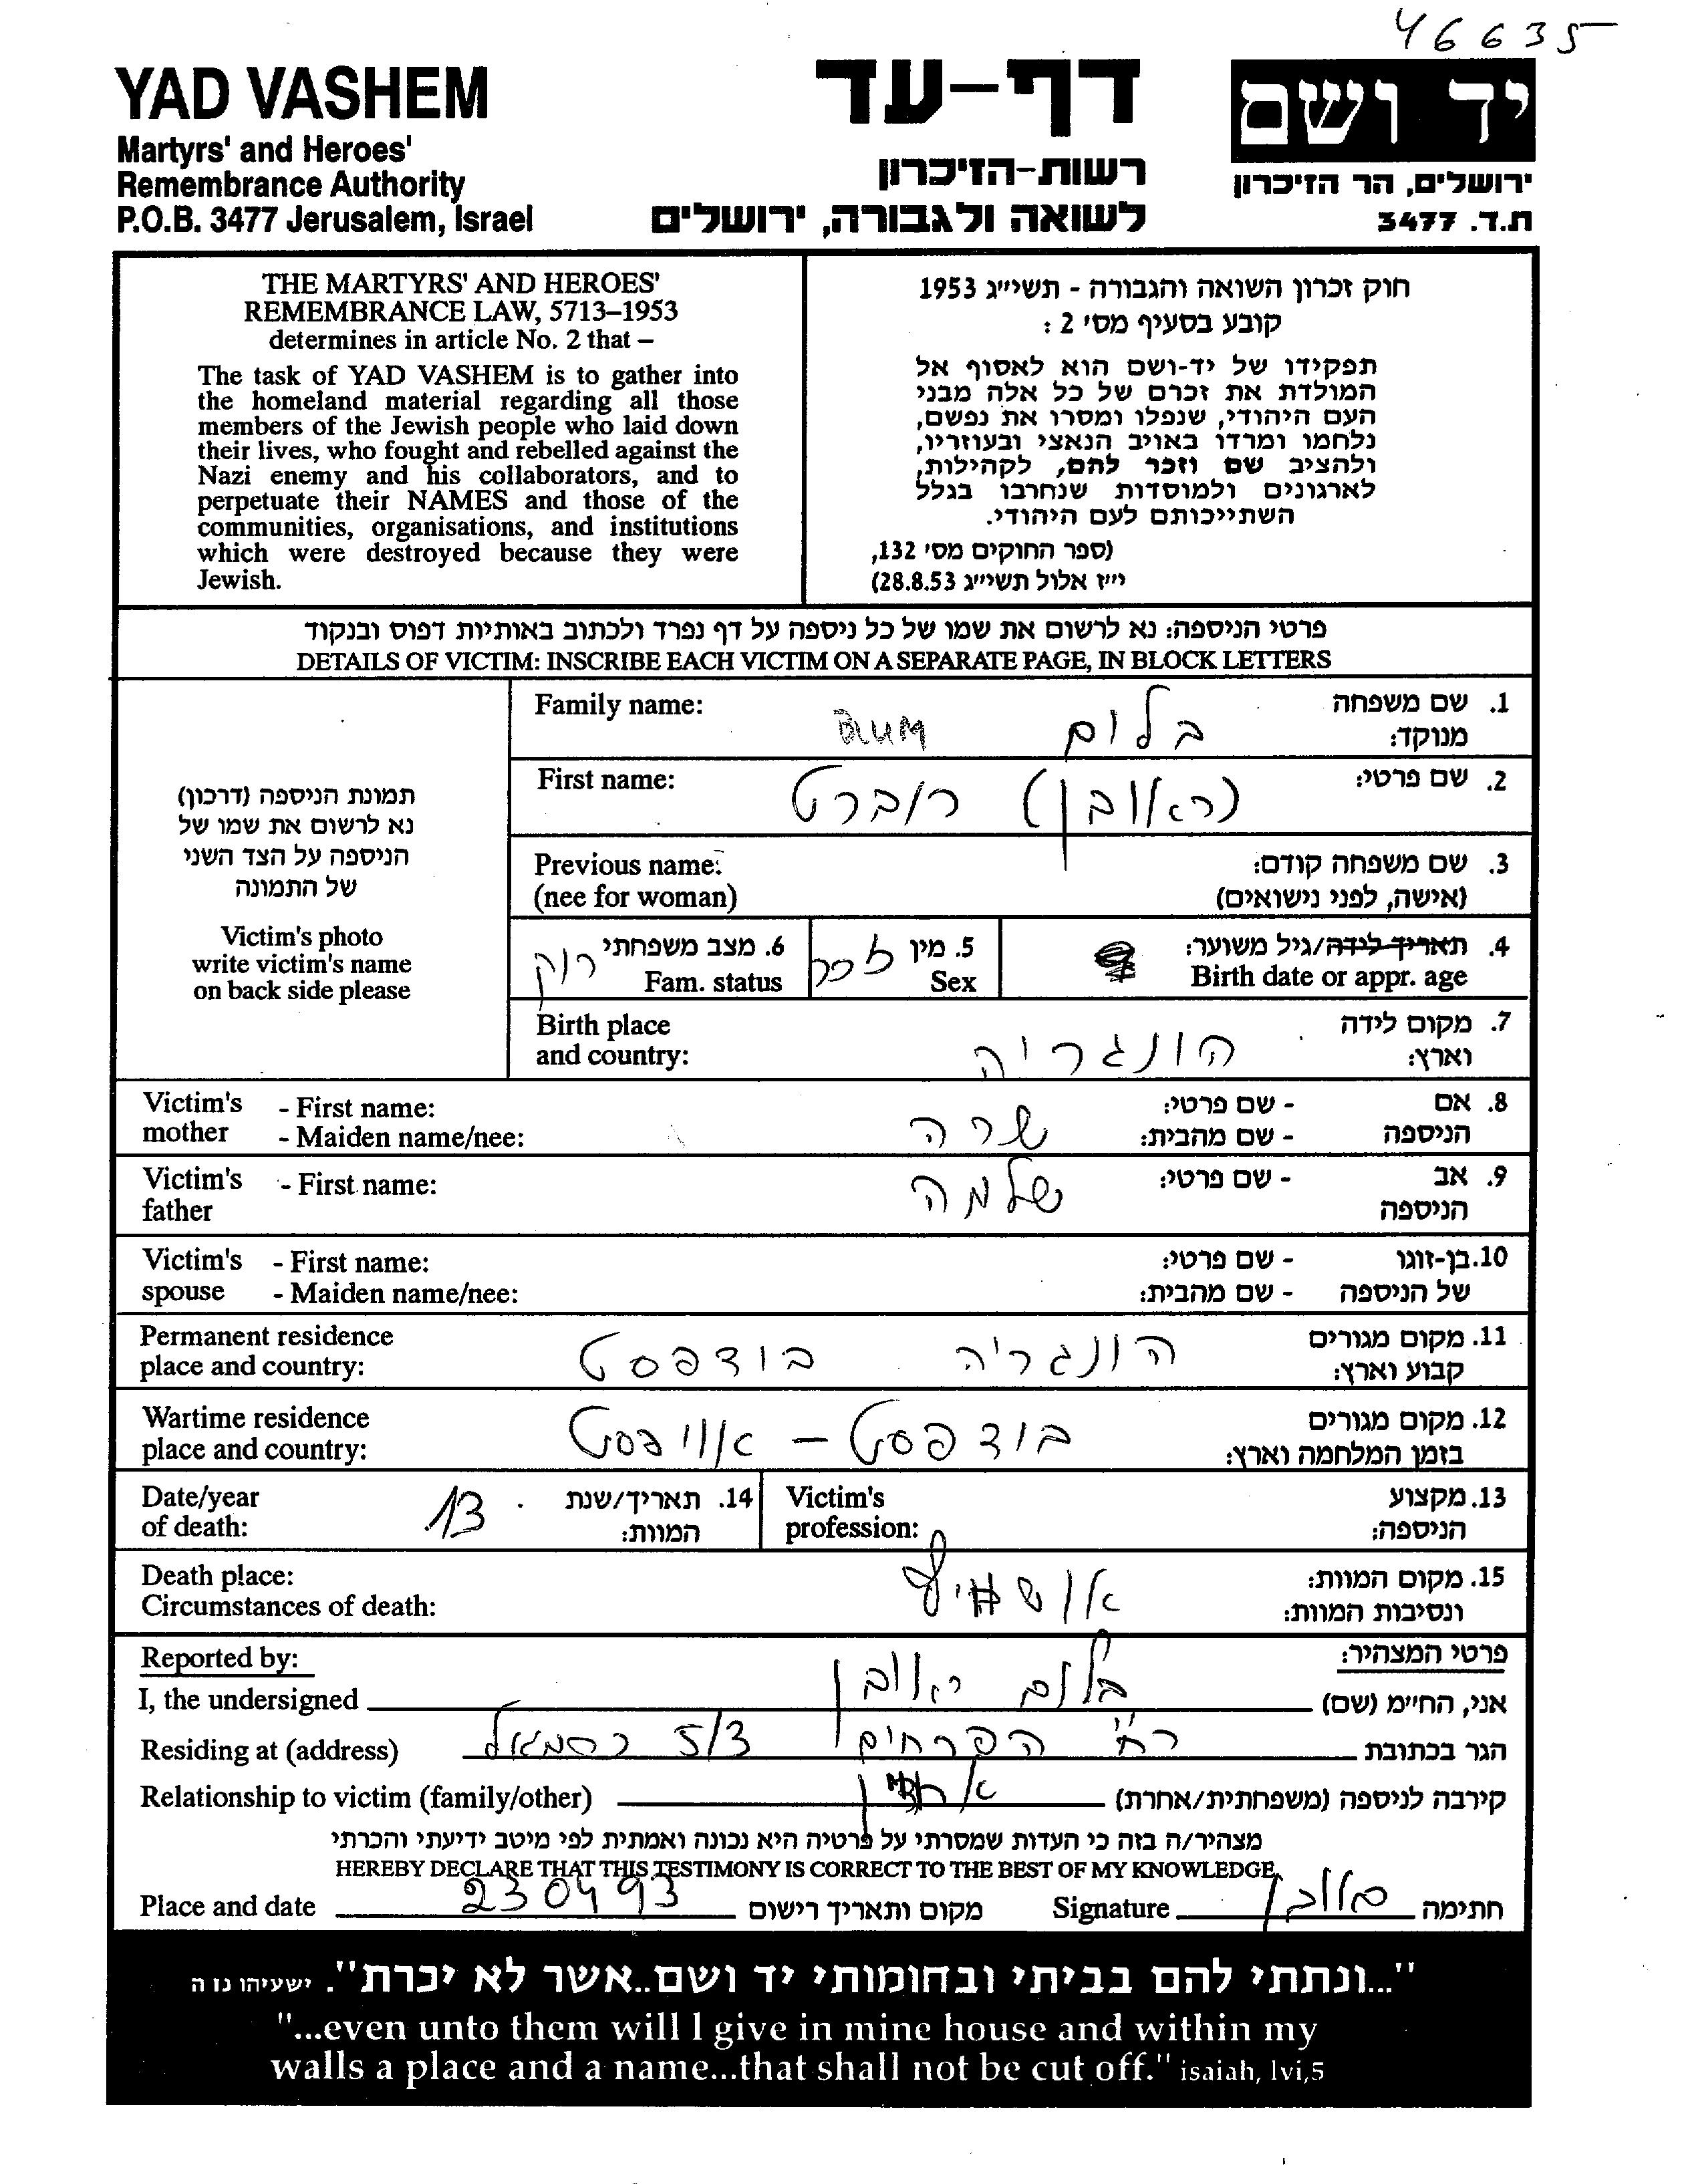 46635
YAD VASHEM
Martyrs' and Heroes'
Remembrance Authority
P.O.B. 3477 Jerusalem, Israel
דף-עד
רשות-הזיכרון
לשואה ולגבורה, ירושלים
יד ושם
ירושלים, הר הזיכרון
ת.ד. 3477
THE MARTYRS' AND HEROES'
REMEMBRANCE LAW, 5713–1953
determines in article No. 2 that –
The task of YAD VASHEM is to gather into
the homeland material regarding all those
members of the Jewish people who laid down
their lives, who fought and rebelled against the
Nazi enemy and his collaborators, and to
perpetuate their NAMES and those of the
communities, organisations, and institutions
which were destroyed because they were
Jewish.
חוק זכרון השואה והגבורה - תשי״ג 1953
קובע בסעיף מס' 2 :
תפקידו של יד-ושם הוא לאסוף אל
המולדת את זכרם של כל אלה מבני
העם היהודי, שנפלו ומסרו את נפשם,
נלחמו ומרדו באויב הנאצי ובעוזריו,
ולהציב שם וזכר להם, לקהילות,
לארגונים ולמוסדות שנחרבו בגלל
השתייכותם לעם היהודי.
(ספר החוקים מס' 132,
י״ז אלול תשי״ג 28.8.53)
פרטי הניספה: נא לרשום את שמו של כל ניספה על דף נפרד ולכתוב באותיות דפוס ובנקוד
DETAILS OF VICTIM: INSCRIBE EACH VICTIM ON A SEPARATE PAGE, IN BLOCK LETTERS
תמונת הניספה (דרכון)
נא לרשום את שמו של
הניספה על הצד השני
של התמונה
Victim's photo
write victim's name
on back side please
Family name: BLUM בלום 1. שם משפחה
מנוקד:
First name: (ראובן) רוברט 2. שם פרטי:
Previous name: 3. שם משפחה קודם:
(nee for woman) (אישה, לפני נישואים)
4. תאריך לידה/גיל משוער:
Birth date or appr. age
5. מין זכר
Sex
6. מצב משפחתי רווק
Fam. status
Birth place 7. מקום לידה
and country: הונגריה וארץ:
Victim's - First name: - שם פרטי: 8. אם
mother - Maiden name/nee: שרה - שם מהבית: הניספה
Victim's - First name: שלמה - שם פרטי: 9. אב
father הניספה
Victim's - First name: - שם פרטי: 10. בן-זוגו
spouse - Maiden name/nee: - שם מהבית: של הניספה
Permanent residence 11. מקום מגורים
place and country: הונגריה בודפסט קבוע וארץ:
Wartime residence 12. מקום מגורים
place and country: בודפסט – אויפסט בזמן המלחמה וארץ:
Date/year 13 14. תאריך/שנת
of death: המוות:
Victim's 13. מקצוע
profession: הניספה:
Death place: 15. מקום המוות:
Circumstances of death: אושוויץ ונסיבות המוות:
Reported by: פרטי המצהיר:
I, the undersigned בלום ראובן אני, החי״מ (שם)
Residing at (address) רח' הפרחים 5/3 כסמאל הגר בכתובת
Relationship to victim (family/other) אחיין קירבה לניספה (משפחתית/אחרת)
מצהיר/ה בזה כי העדות שמסרתי על פרטיה היא נכונה ואמתית לפי מיטב ידיעתי והכרתי
HEREBY DECLARE THAT THIS TESTIMONY IS CORRECT TO THE BEST OF MY KNOWLEDGE
Place and date 23 04 93 מקום ותאריך רישום Signature חתימה
"...ונתתי להם בביתי ובחומותי יד ושם..אשר לא יכרת". ישעיהו נז ה
"...even unto them will I give in mine house and within my
walls a place and a name...that shall not be cut off." isaiah, lvi,5